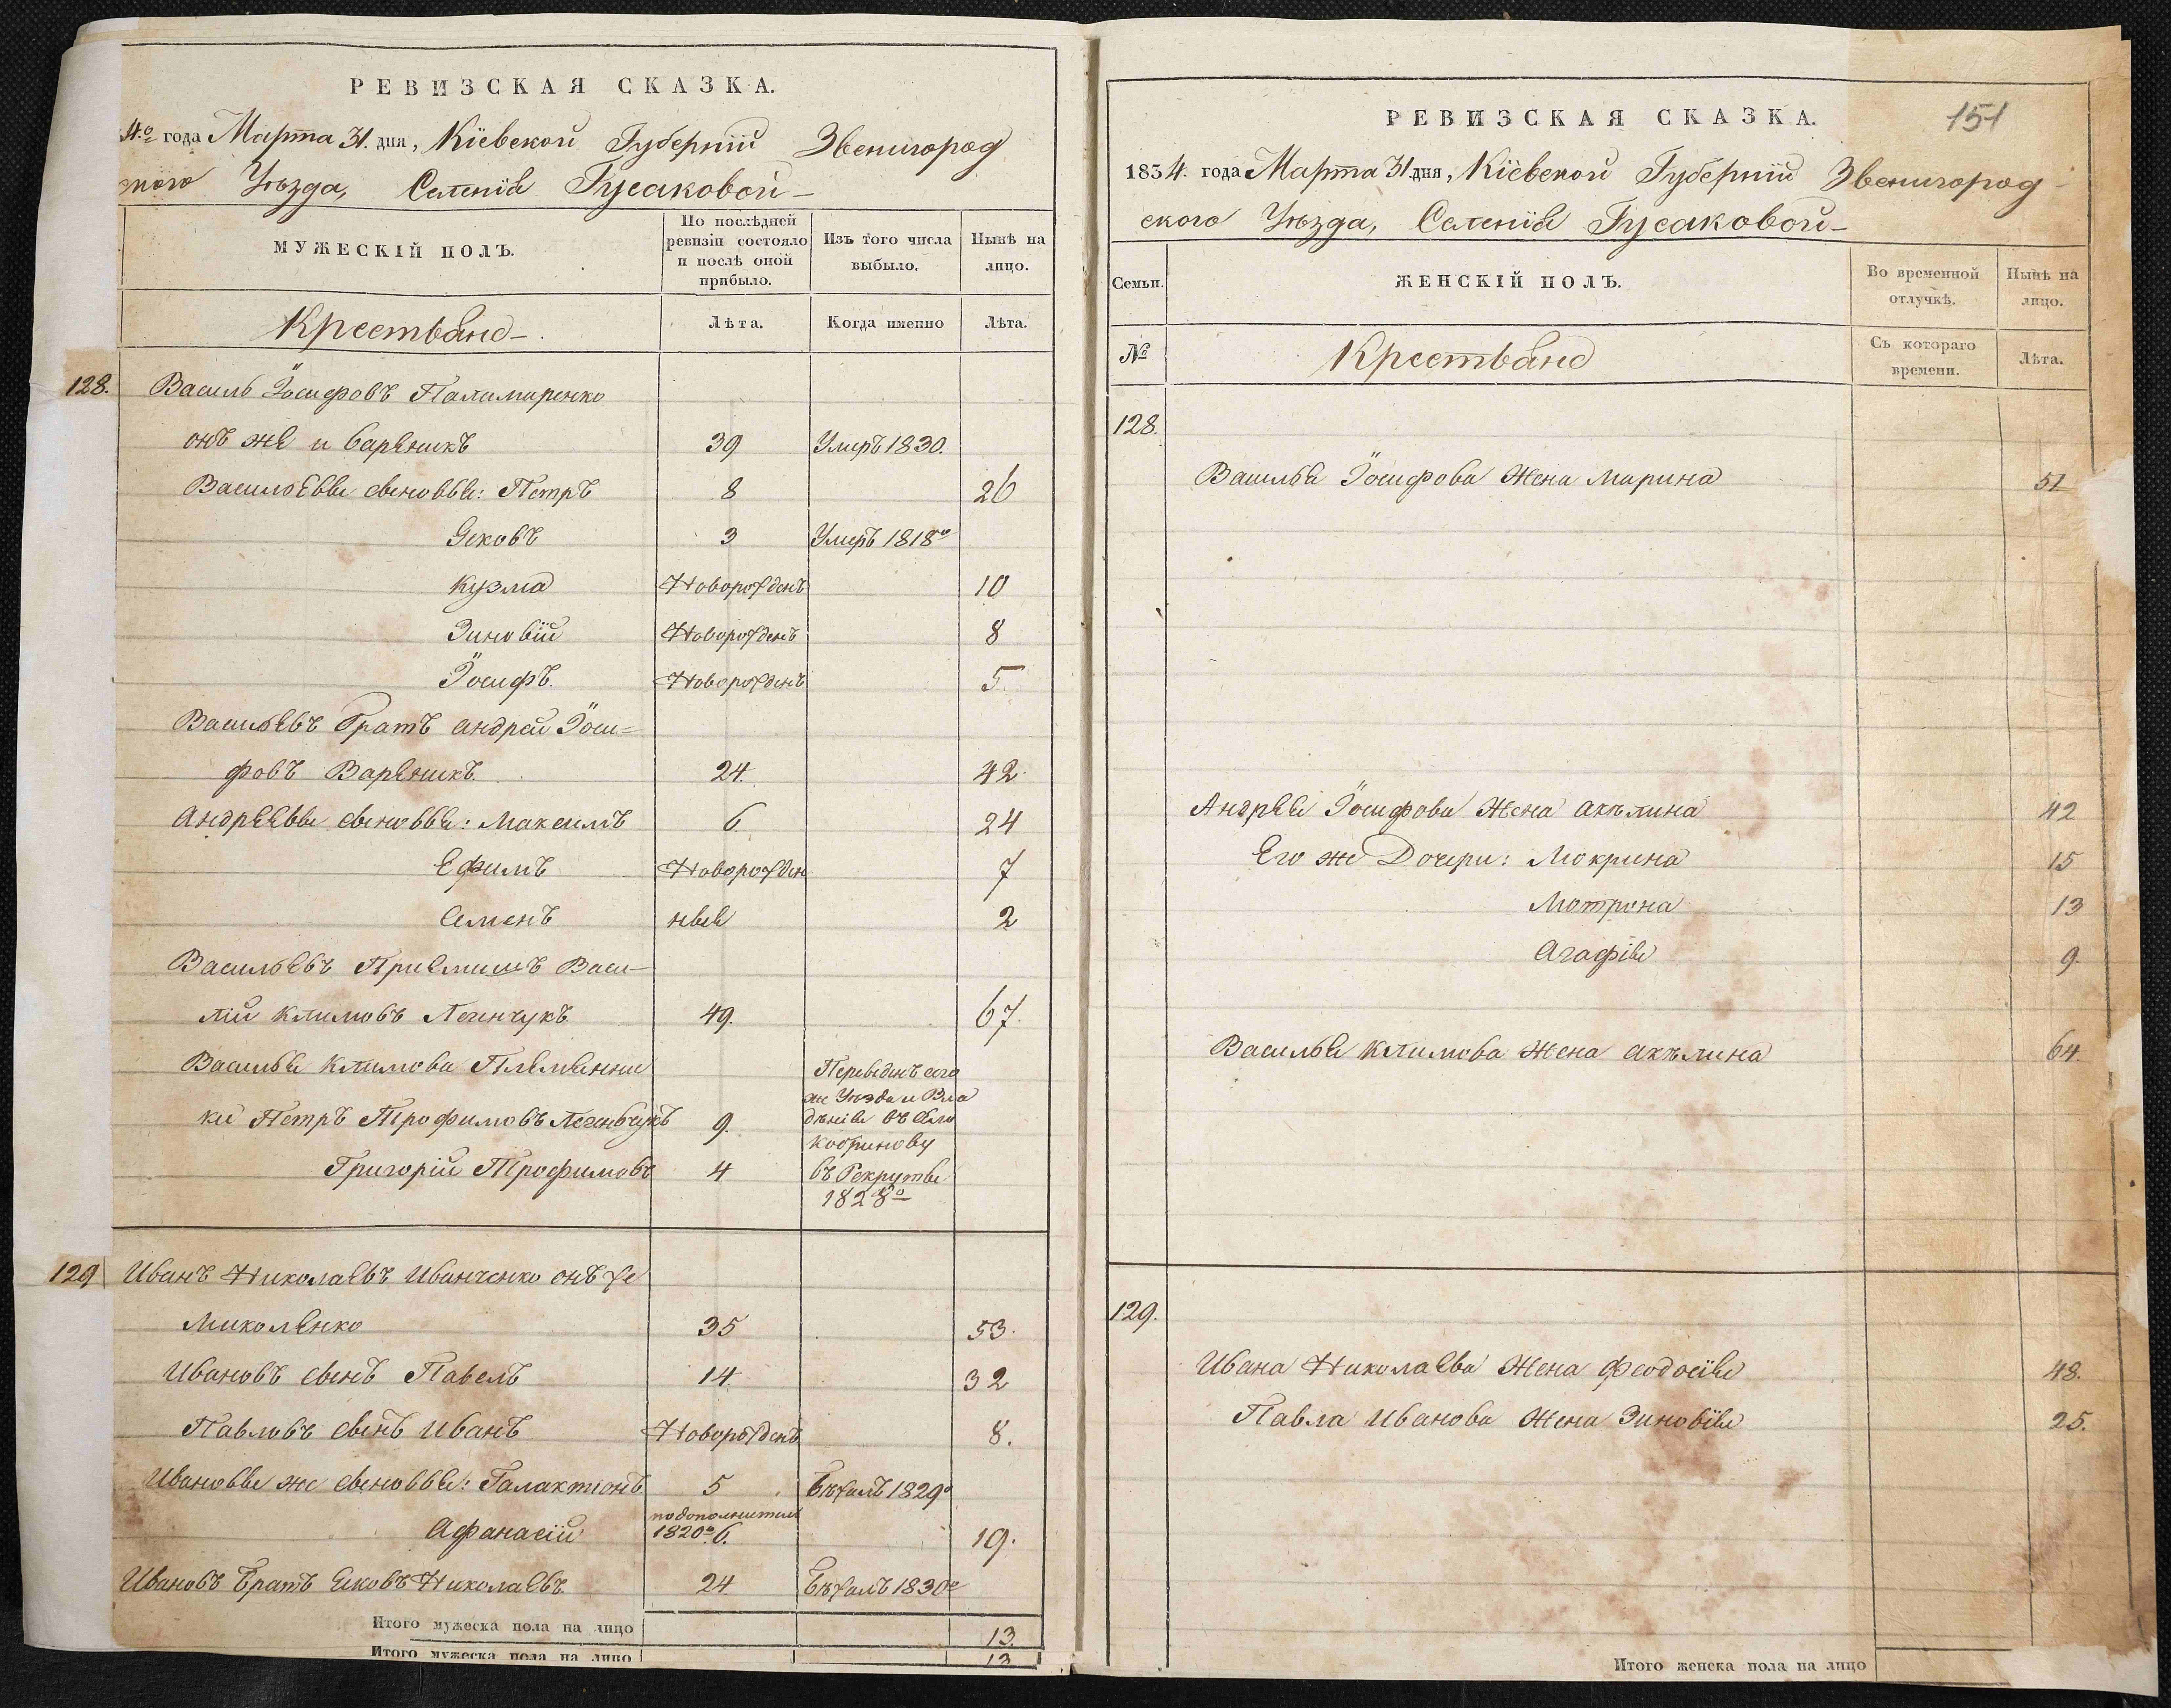 РЕВИЗСКАЯ СКАЗКА.
4.го года Марта 31. дня, Кіевской Губерніи Звенигород
ского Уѣзда, Селенія Гусаковой
МУЖЕСКІЙ ПОЛЪ.
По послѣдней ревизіи состояло и послѣ оной прибыло.
Изъ того числа выбыло.
Нынѣ на лицо.
Крестьяне
Лѣта.
Когда именно
Лѣта.
128. Василь Іосифовъ Паламаренко
онъ же и Вареникъ 39 Умеръ 1830.
Васильевы сыновья: Петръ 8 26
Яковъ 3 Умеръ 1818го
Кузма Новорожденъ 10
Зиновій Новорожденъ 8
Іосифъ. Новорожденъ 5.
Васильевъ братъ андрей Іоси=
фовъ Вареникъ. 24. 42.
Андреевы сыновья: Максимъ 6 24
Ефимъ Новорожден 7
Семенъ ные 2
Васильевъ Приемишъ Васи-
лій Климовъ Легенчукъ 49. 67.
Василья Климова Племянни
ки Петръ Трофимовъ Легенчукъ 9. Переведенъ сего
же Уѣзда и Вла
дѣнія въ село
Кобринову
Григорій Трофимовъ 4 въ Рекруты
1828го
129 Иванъ Николаевъ Иванченко онъ же
Миколенко 35 53.
Ивановъ сынъ Павелъ 14 32
Павловъ сынъ Иванъ Новорожденъ 8.
Ивановы же сыновья: Галактіонъ 5 Бѣжалъ 1829го
Афанасій 1820го 6. 19.
Ивановъ братъ Яковъ Николаевъ 24 Бѣжалъ 1830го
Итого мужеска пола на лицо 13.
Итого мужеска пола на лицо 13
151
РЕВИЗСКАЯ СКАЗКА.
1834. года Марта 31 дня, Кіевской Губерніи Звенигород-
ского Уѣзда, Селенія Гусаковой
Семьи.
ЖЕНСКІЙ ПОЛЪ.
Во временной отлучкѣ.
Нынѣ на лицо.
№
Крестьяне
Съ котораго времени.
Лѣта.
128.
Василья Іосифова Жена Марина 51
Андрея Іосифова Жена акѣлина 42
Его же Дочери: Мокрина 15
Мотрона 13
Агафія 9.
Василья Климова Жена акѣлина 64
129.
Ивана Николаева Жена Феодосія 48.
Павла Иванова Жена Зиновія 25.
Итого женска пола на лицо